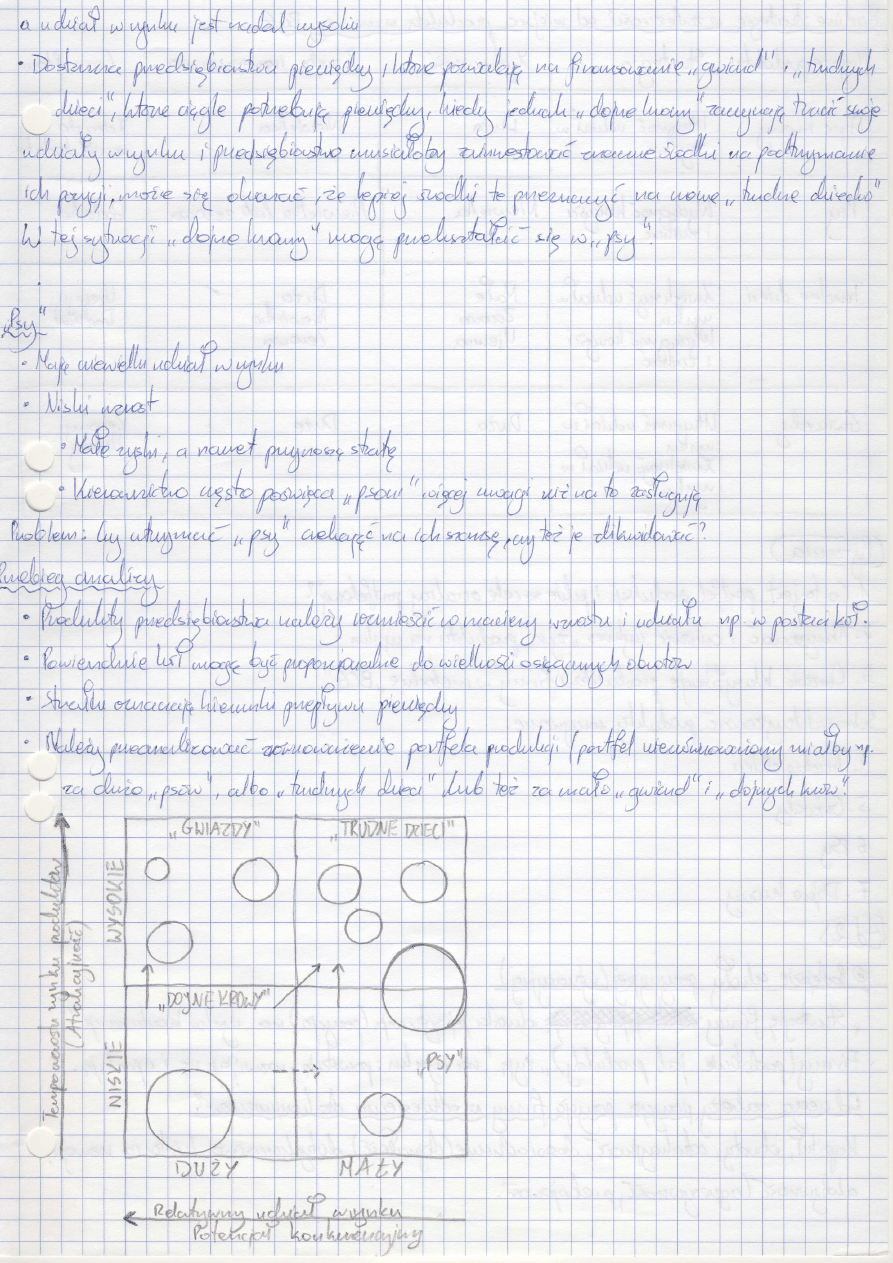 a udział w rynku jest nadal wysoki
• Dostarcza przedsiębiorstwu pieniędzy, które pozwalają na finansowanie „gwiazd” i „trudnych
dzieci”, które ciągle potrzebują pieniędzy, kiedy jednak „dojne krowy” zaczynają tracić swoje
udziały w rynku i przedsiębiorstwo musiałoby zainwestować znaczne środki na podtrzymanie
ich pozycji, może się okazać, że lepiej środki te przeznaczyć na nowe „trudne dziecko”
W tej sytuacji „dojne krowy” mogą przekształcić się w „psy”.
„Psy”
• Mają niewielki udział w rynku
• Niski wzrost
• Małe zyski, a nawet przynoszą stratę
• Kierownictwo często poświęca „psom” więcej uwagi niż na to zasługują
Problem: Czy utrzymać „psy” czekając na ich szansę, czy też je zlikwidować?
Przebieg analizy
• Produkty przedsiębiorstwa należy rozmieścić w macierzy wzrostu i udziału np. w postaci kół.
• Powierzchnie kół mogą być proporcjonalne do wielkości osiąganych obrotów
• Strzałki oznaczają kierunki przepływu pieniędzy
• Należy przeanalizować zrównoważenie portfela produkcji (portfel niezrównoważony miałby np.
za dużo „psów”, albo „trudnych dzieci” lub też za mało „gwiazd” i „dojnych krów”.
„GWIAZDY” „TRUDNE DZIECI”
WYSOKIE
Tempo wzrostu rynku produktów
(Atrakcyjność)
„DOJNE KROWY”
„PSY”
NISKIE
DUŻY MAŁY
Relatywny udział w rynku
Potencjał konkurencyjny